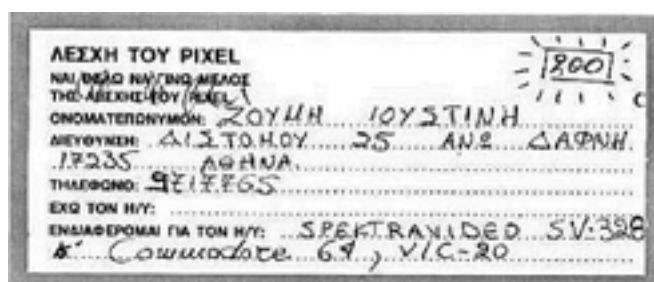 ΛΕΣΧΗ ΤΟΥ PIXEL
200
ΝΑΙ ΘΕΛΩ ΝΑ ΓΙΝΩ ΜΕΛΟΣ
ΤΗΣ ΛΕΣΧΗΣ ΤΟΥ PIXEL
ΟΝΟΜΑΤΕΠΩΝΥΜΟΝ: ΖΟΥΜΗ ΙΟΥΣΤΙΝΗ
ΔΙΕΥΘΥΝΣΗ: ΔΙΣΤΟΜΟΥ 25 ΑΝΩ ΔΑΦΝΗ
17235 ΑΘΗΝΑ
ΤΗΛΕΦΩΝΟ: 9717765
ΕΧΩ ΤΟΝ Η/Υ:
ΕΝΔΙΑΦΕΡΟΜΑΙ ΓΙΑ ΤΟΝ Η/Υ: SPEKTRAVIDEO SV-328
Commodore 64, VIC-20